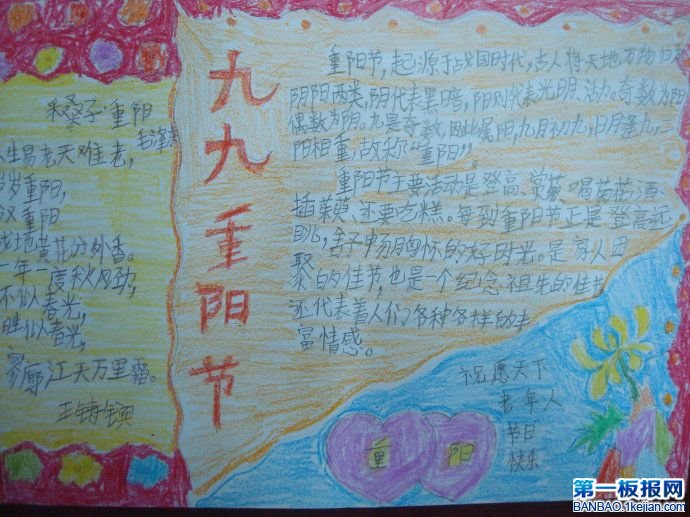 采桑子·重阳
毛泽东
人生易老天难老，
岁岁重阳，
今又重阳
战地黄花分外香。
一年一度秋风劲，
不似春光，
胜似春光，
寥廓江天万里霜。
王铸镔
九九重阳节
重阳节，起源于战国时代，古人将天地万物归为
阴阳两类，阴代表黑暗，阳则代表光明、活力。奇数为阳
偶数为阴。九是奇数，因此属阳，九月初九，日月逢九，二
阳相重，故称“重阳”。
重阳节主要活动是登高、赏菊、喝菊花酒、
插茱萸、还要吃糕。每到重阳节正是登高远
眺，舒畅胸怀的好时光。是家人团
聚的佳节，也是一个纪念祖先的佳节
还代表着人们各种各样的丰
富情感。
祝愿天下
老年人
节日
快乐
重 阳
第一板报网
BANBAO.1kejian.com